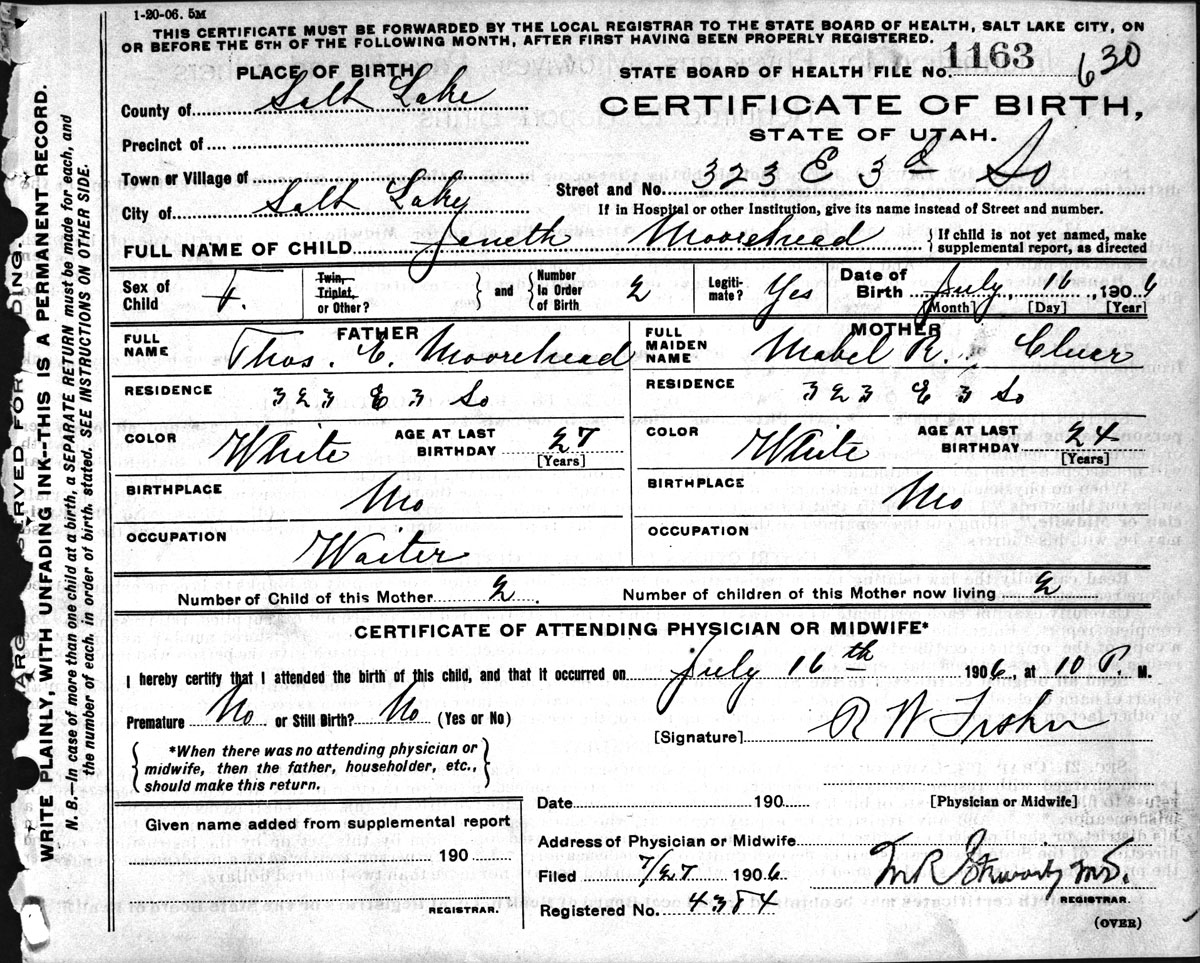 1-20-06. 5M
THIS CERTIFICATE MUST BE FORWARDED BY THE LOCAL REGISTRAR TO THE STATE BOARD OF HEALTH, SALT LAKE CITY, ON
OR BEFORE THE 5TH OF THE FOLLOWING MONTH, AFTER FIRST HAVING BEEN PROPERLY REGISTERED.
PLACE OF BIRTH
STATE BOARD OF HEALTH FILE No. 1163 630
County of Salt Lake
CERTIFICATE OF BIRTH,
STATE OF UTAH.
Precinct of
Town or Village of
Street and No. 323 E 3d So
City of Salt Lake
If in Hospital or other Institution, give its name instead of Street and number.
FULL NAME OF CHILD Janeth Moorehead {If child is not yet named, make supplemental report, as directed
Sex of Child F. Twin, Triplet, or Other? } and { Number in Order of Birth 2 Legitimate? Yes Date of Birth July 16, 1906
[Month] [Day] [Year]
FATHER
MOTHER
FULL NAME Thos. E. Moorehead
FULL MAIDEN NAME Mabel R. Cluer
RESIDENCE 323 E 3 So
RESIDENCE 323 E 3 So
COLOR White AGE AT LAST BIRTHDAY 27 [Years]
COLOR White AGE AT LAST BIRTHDAY 24 [Years]
BIRTHPLACE Mo
BIRTHPLACE Mo
OCCUPATION Waiter
OCCUPATION
Number of Child of this Mother 2. Number of children of this Mother now living 2
CERTIFICATE OF ATTENDING PHYSICIAN OR MIDWIFE*
I hereby certify that I attended the birth of this child, and that it occurred on July 16th 1906, at 10 P. M.
Premature No or Still Birth? No (Yes or No)
[Signature] R W Fisher
*When there was no attending physician or
midwife, then the father, householder, etc.,
should make this return.
Date 190
[Physician or Midwife]
Given name added from supplemental report
190
REGISTRAR.
Address of Physician or Midwife
Filed 7/27 1906
M R Stewart M.D.
REGISTRAR.
Registered No. 4384
(OVER)
WRITE PLAINLY WITH UNFADING INK--THIS IS A PERMANENT RECORD.
N. B.—In case of more than one child at a birth, a SEPARATE RETURN must be made for each, and
the number of each, in order of birth, stated. SEE INSTRUCTIONS ON OTHER SIDE.